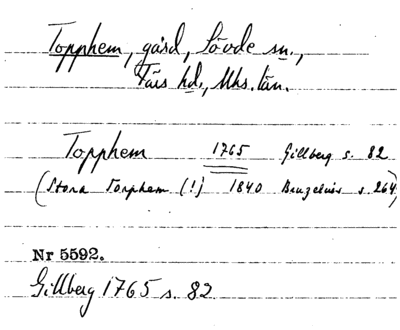 Topphem, gård, Sövde sn.,
Färs hd., Mhs. län.
Topphem 1765 Gillberg s. 82
(Stora Torphem (!) 1840 Bexelius s. 264)
Nr 5592.
Gillberg 1765 s. 82